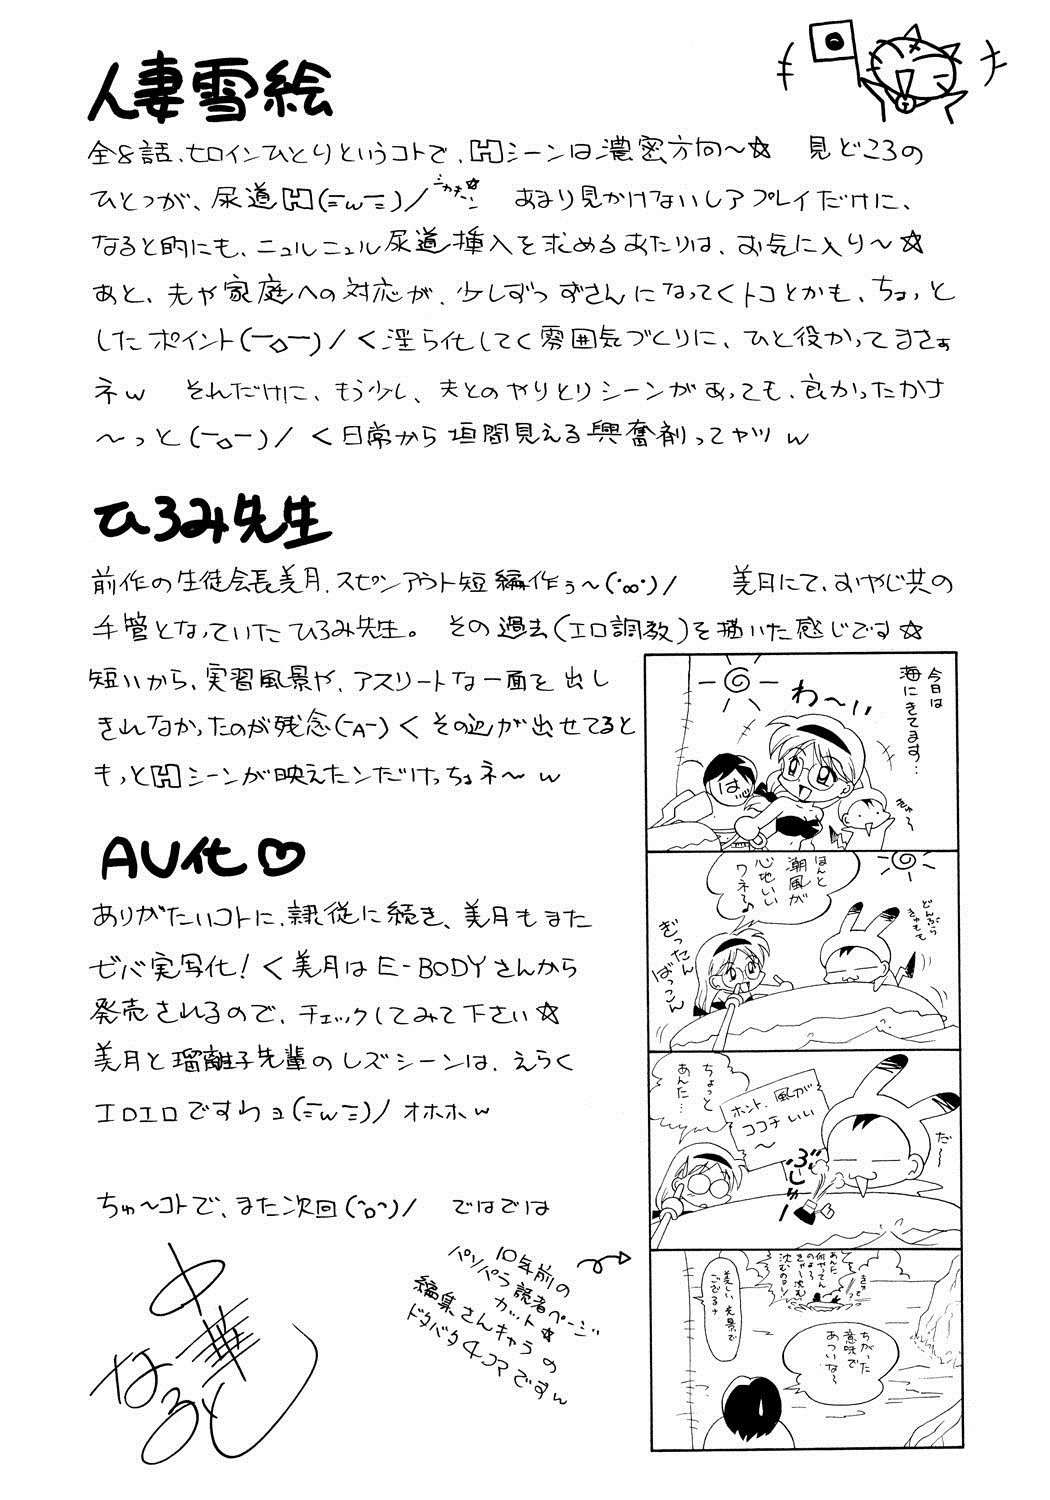 人妻雪絵
全8話、ヒロインひとりというコトで、Hシーンは濃密方向～☆　見どころの
ひとつが、尿道H(ﾆwﾆ)ノジャキーン☆　あまり見かけないレアプレイだけに、
なると的にも、ニュルニュル尿道挿入を求めるあたりは、お気に入り～☆
あと、夫や家庭への対応が、少しずつずさんになってくトコとかも、ちょっと
したポイント(￣o￣)ノ く淫ら化してく雰囲気づくりに、ひと役かってまさぁ
ネw　それだけに、もう少し、夫とのやりとりシーンがあっても、良かったかナ
～っと(￣o￣)ノ く日常から垣間見える興奮剤ってヤツw
ひろみ先生
前作の生徒会長美月、スピンアウト短編作ぅ～(・∞・)ノ　美月にて、おやじ共の
手管となっていたひろみ先生。　その過去(エロ調教)を描いた感じです☆
短いから、実習風景や、アスリートな一面を出し
きれなかったのが残念(￣A￣) くその辺が出せてると
もっとHシーンが映えたンだけっちょネ～w
AV化♡
ありがたいコトに、隷従に続き、美月もまた
ゼバ実写化！く美月はE-BODYさんから
発売されるので、チェックしてみて下さい☆
美月と瑠璃子先輩のレズシーンは、えらく
エロエロですわョ(ﾆwﾆ)ノ オホホw
ちゅ～コトで、また次回(^o^)ノ　ではでは
中華
なると
10年前の
パソパラ読者ページ
カット☆
編集さんキャラの
ドタバタ4コマですw
今日は
海にきてます…
わ～い
はい
きゃ～
ほんと
潮風が
心地いい
ワネ～♪
どんぶら
ぎったん
ばっこん
ちょっと
あんた…
ホント、風が
ココチいい
～
だ～
ぶしゅー
あんた
何やってん
のよ～
きゃー沈む
沈むのヨン
美しい光景で
ござるナ
ちがった
意味で
あついな～